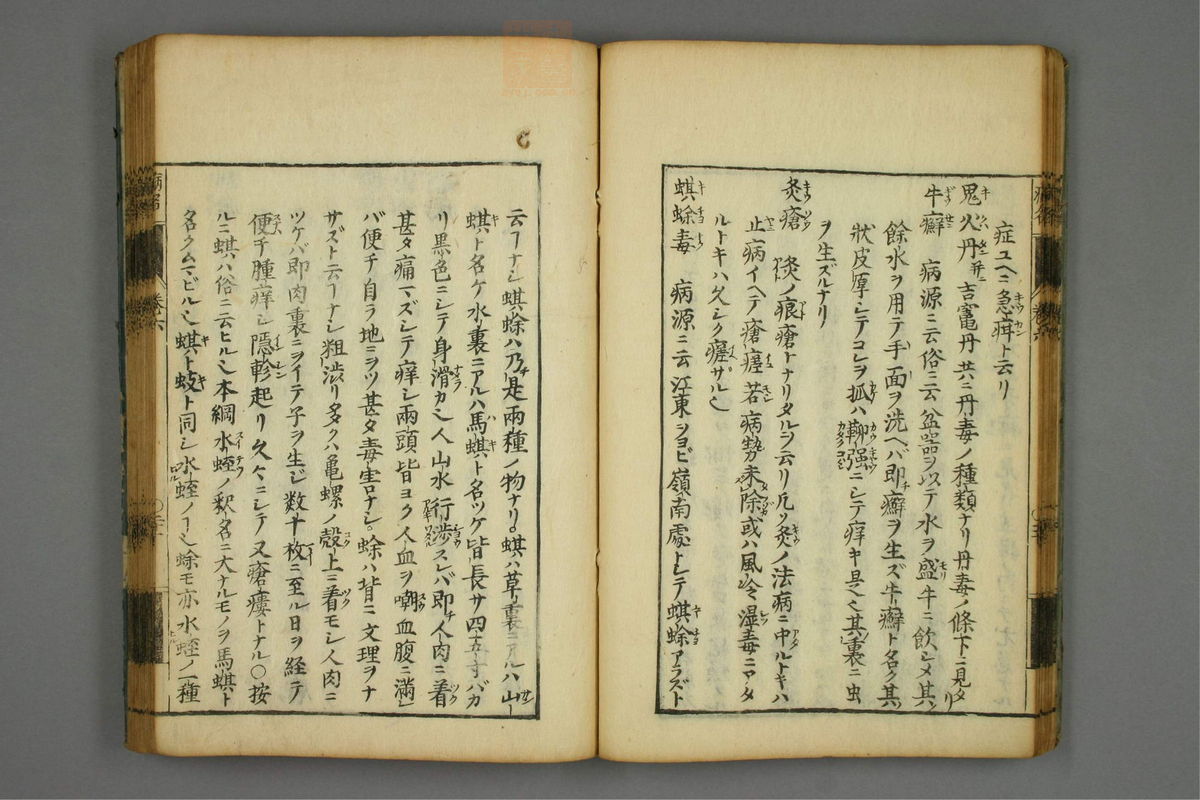 症ユヘニ急疳ト云リ
鬼火丹 并ニ吉竈丹共ニ丹毒ノ種類ナリ丹毒ノ條下ニ見タリ
牛癬 病源ニ云俗ニ云盆器ヲ以テ水ヲ盛牛ニ飲シメ其
餘水ヲ用テ手面ヲ洗ヘバ即癬ヲ生ズ牛癬ト名ク其
狀皮厚シテコレヲ抓ハ鞕强ニシテ痒キ是也其裏ニ虫
ヲ生ズルナリ
灸瘡 灸ノ痕瘡トナリタルヲ云リ凡ソ灸ノ法病ニ中ルトキハ
止病イヘテ瘡瘥若病勢未除或ハ風冷湿毒ニアタ
ルトキハ久シク瘥サル也
蜞蜍毒 病源ニ云江東ヲヨビ嶺南處トシテ蜞蜍アラズト
云フナシ蜞蜍ハ乃是兩種ノ物ナリ蜞ハ草裏ニアルハ山
蜞ト名ケ水裏ニアルハ馬蜞ト名ツケ皆長サ四五寸バカ
リ黒色ニシテ身滑カ也人山水行渉スレバ即人肉ニ着
甚タ痛マズシテ痒シ兩頭皆ヨク人血ヲ嘲血腹ニ滿
バ便チ自ラ地ニヲツ甚タ毒害ナシ蜍ハ背ニ文理ヲナ
サズト云フナシ粗渋リ多クハ亀螺ノ殼上ニ着モシ人肉ニ
ツケバ即肉裏ニヲイテ子ヲ生ジ数十枚ニ至ル日ヲ経テ
便チ腫痒シ隠軫起リ久々ニシテ又瘡瘻トナル○按
ルニ蜞ハ俗ニ云ヒル也本綱水蛭ノ釈名ニ大ナルモノヲ馬蜞ト
名クムマビル也蜞ト蚑ト同シ水蛭ノ一也蜍モ亦水蛭ノ一種
卷六